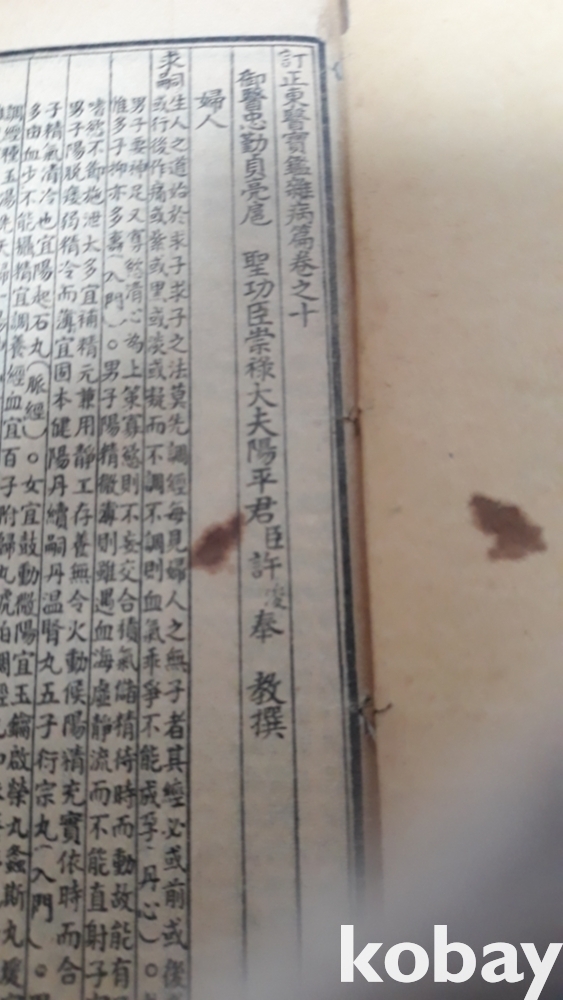 訂正東醫寶鑑雜病篇卷之十
御醫忠勤貞亮扈 聖功臣崇祿大夫陽平君臣許浚奉 教撰
婦人
求嗣 生人之道始於求子求子之法莫先調經每見婦人之無子者其經必或前或後
或行後作痛或紫或黑或淡或凝而不調不調則血氣乖爭不能成孕(丹心)。
男子要神足又寡慾清心爲上策寡慾則不妄交合積氣儲精待時而動故能有
惟多子抑亦多壽(入門)。男子陽精微薄則雖遇血海虛靜流而不能直射子
嗜慾不節施泄太多宜補精元兼用靜工存養無令火動候陽精充實依時而合
男子陽脫痿弱精冷而薄宜固本健陽丹續嗣丹溫腎丸五子衍宗丸(入門)。
子精氣清冷也宜陽起石丸(脈經)。女宜鼓動微陽宜玉鑰啟榮丸螽斯丸煖
多由血少不能攝精宜調養經血宜百子附歸丸琥珀調經
調經種玉湯先天歸一湯
kobay